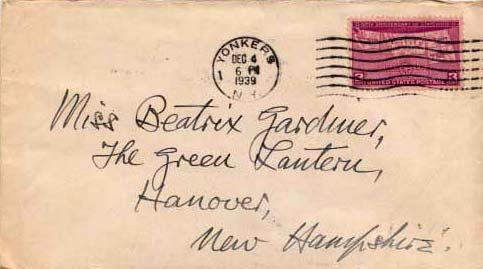 YONKERS
1
DEC 4
6 PM
1939
N.Y.
50TH ANNIVERSARY OF STATEHOOD
3 UNITED STATES POSTAGE 3
Miss Beatrix Gardiner,
The Green Lantern,
Hanover,
New Hampshire.